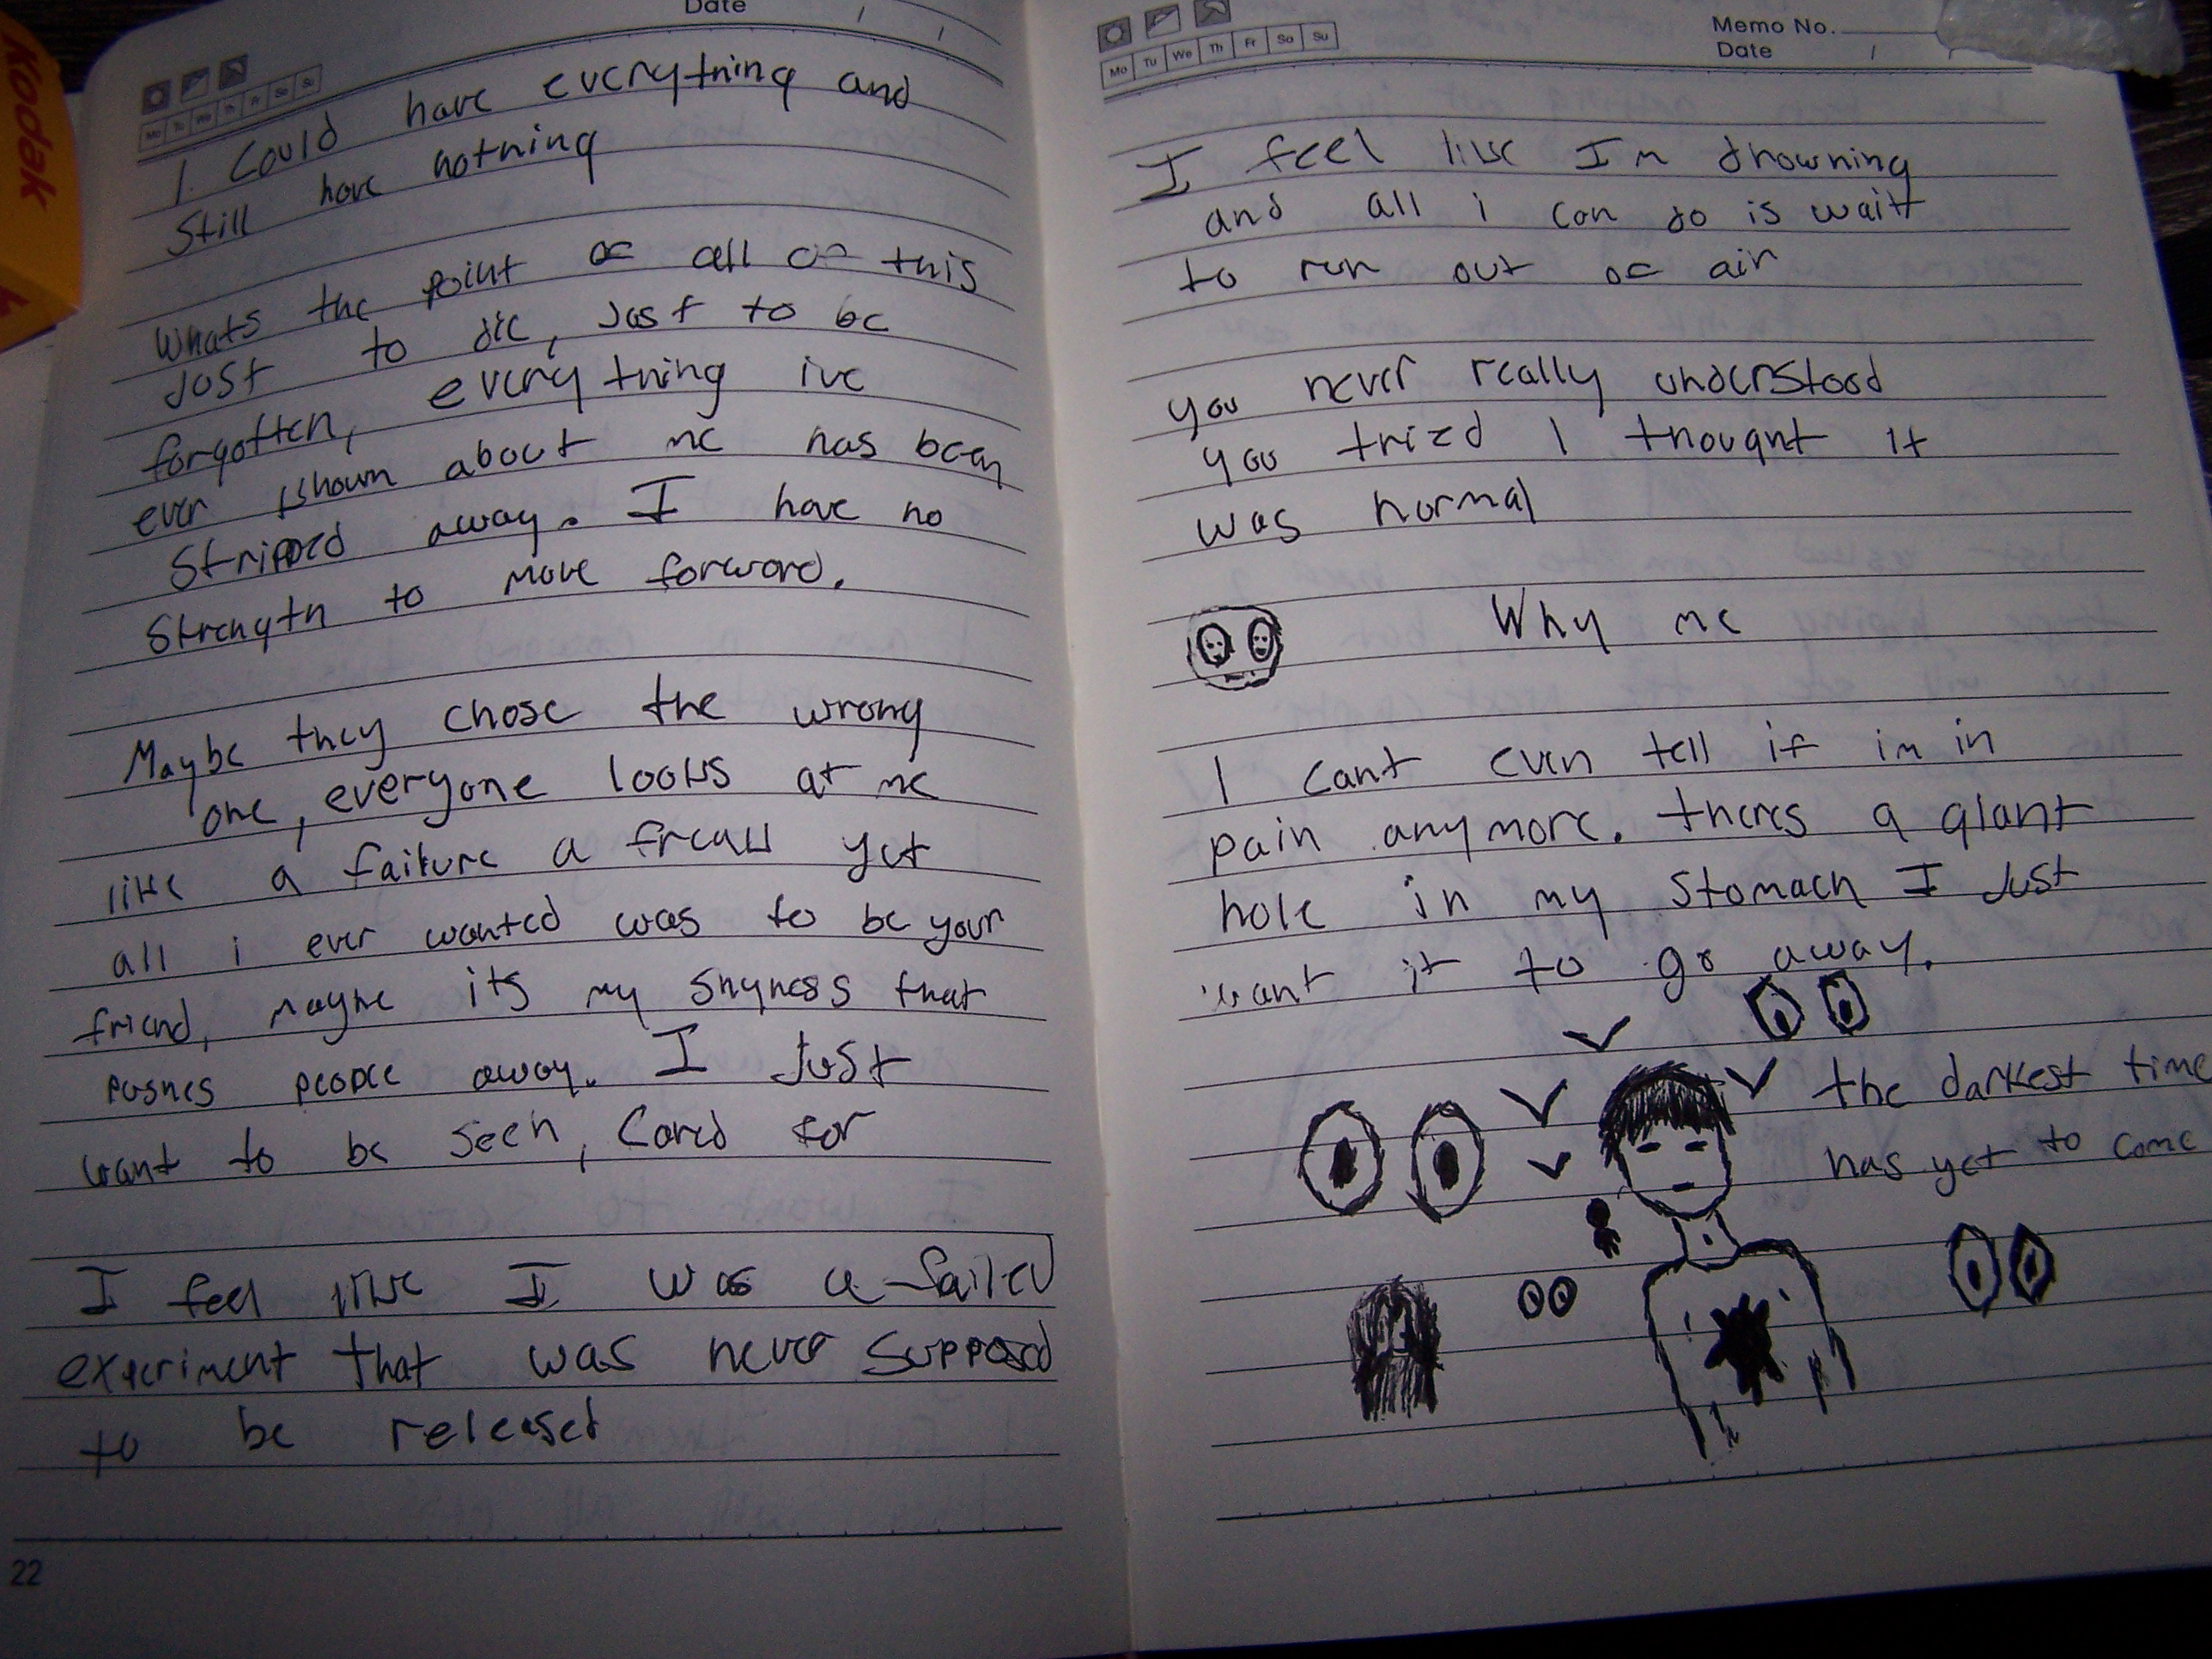 Kodak
k
Date / /
Mo Tu We Th Fr Sa Su
I Could have everything and
Still have nothing
Whats the point of all of this
Just to die, Just to be
forgotten, everything ive
ever shown about me has been
Stripped away. I have no
Strength to move forward.
Maybe they chose the wrong
one, everyone looks at me
like a failure a freak yet
all i ever wanted was to be your
friend, maybe its my shyness that
pushes people away. I Just
want to be seen, Cared for
I feel like I was a failed
experiment that was never supposed
to be released
22
Memo No.
Mo Tu We Th Fr Sa Su
Date / /
I feel like I'm drowning
and all i can do is wait
to run out of air
you never really understood
you tried I thought it
was normal
Why me
I cant even tell if im in
pain anymore. theres a giant
hole in my stomach I Just
want it to go away.
the darkest time
has yet to come